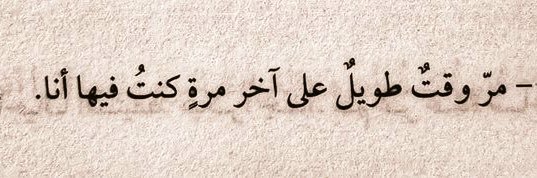 - مرّ وقتٌ طويلٌ على آخر مرةٍ كنتُ فيها أنا.